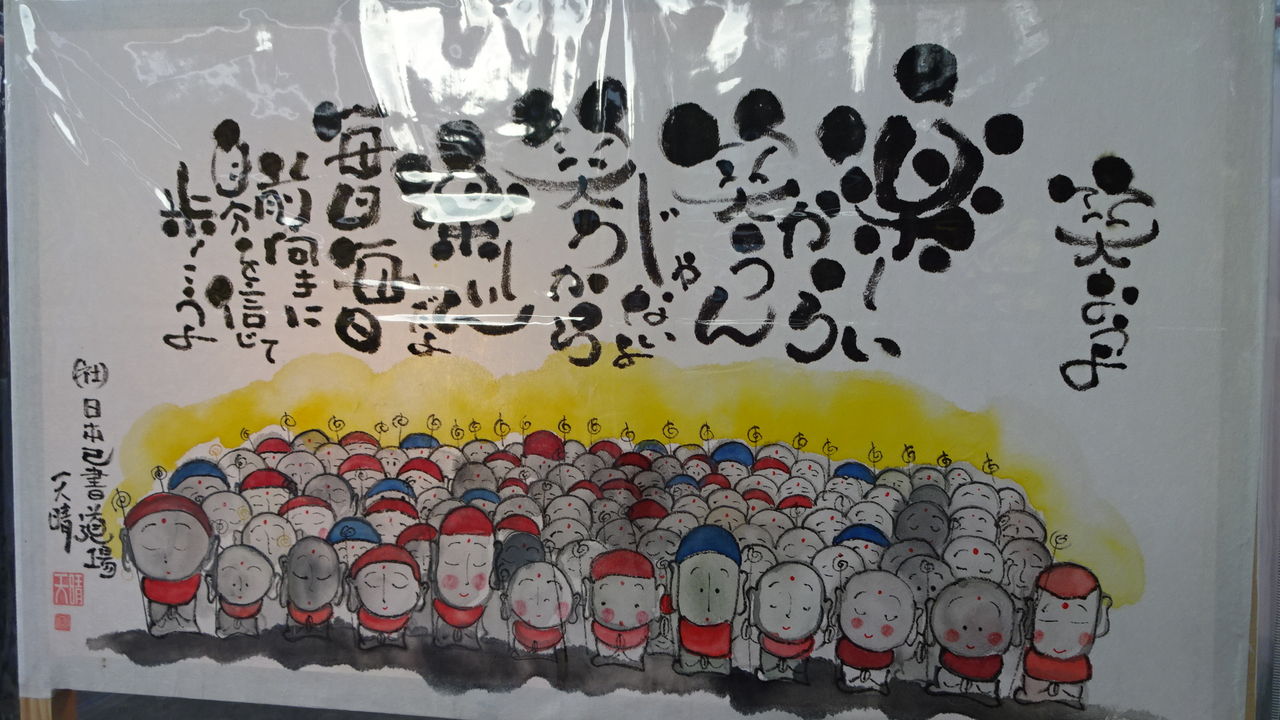 笑おうよ
楽しい
から
笑うん
じゃないよ
笑うから
楽しいんだよ
毎日毎日
前向きに
自分を信じて
歩こうよ
㈳日本己書道場
天晴
天晴